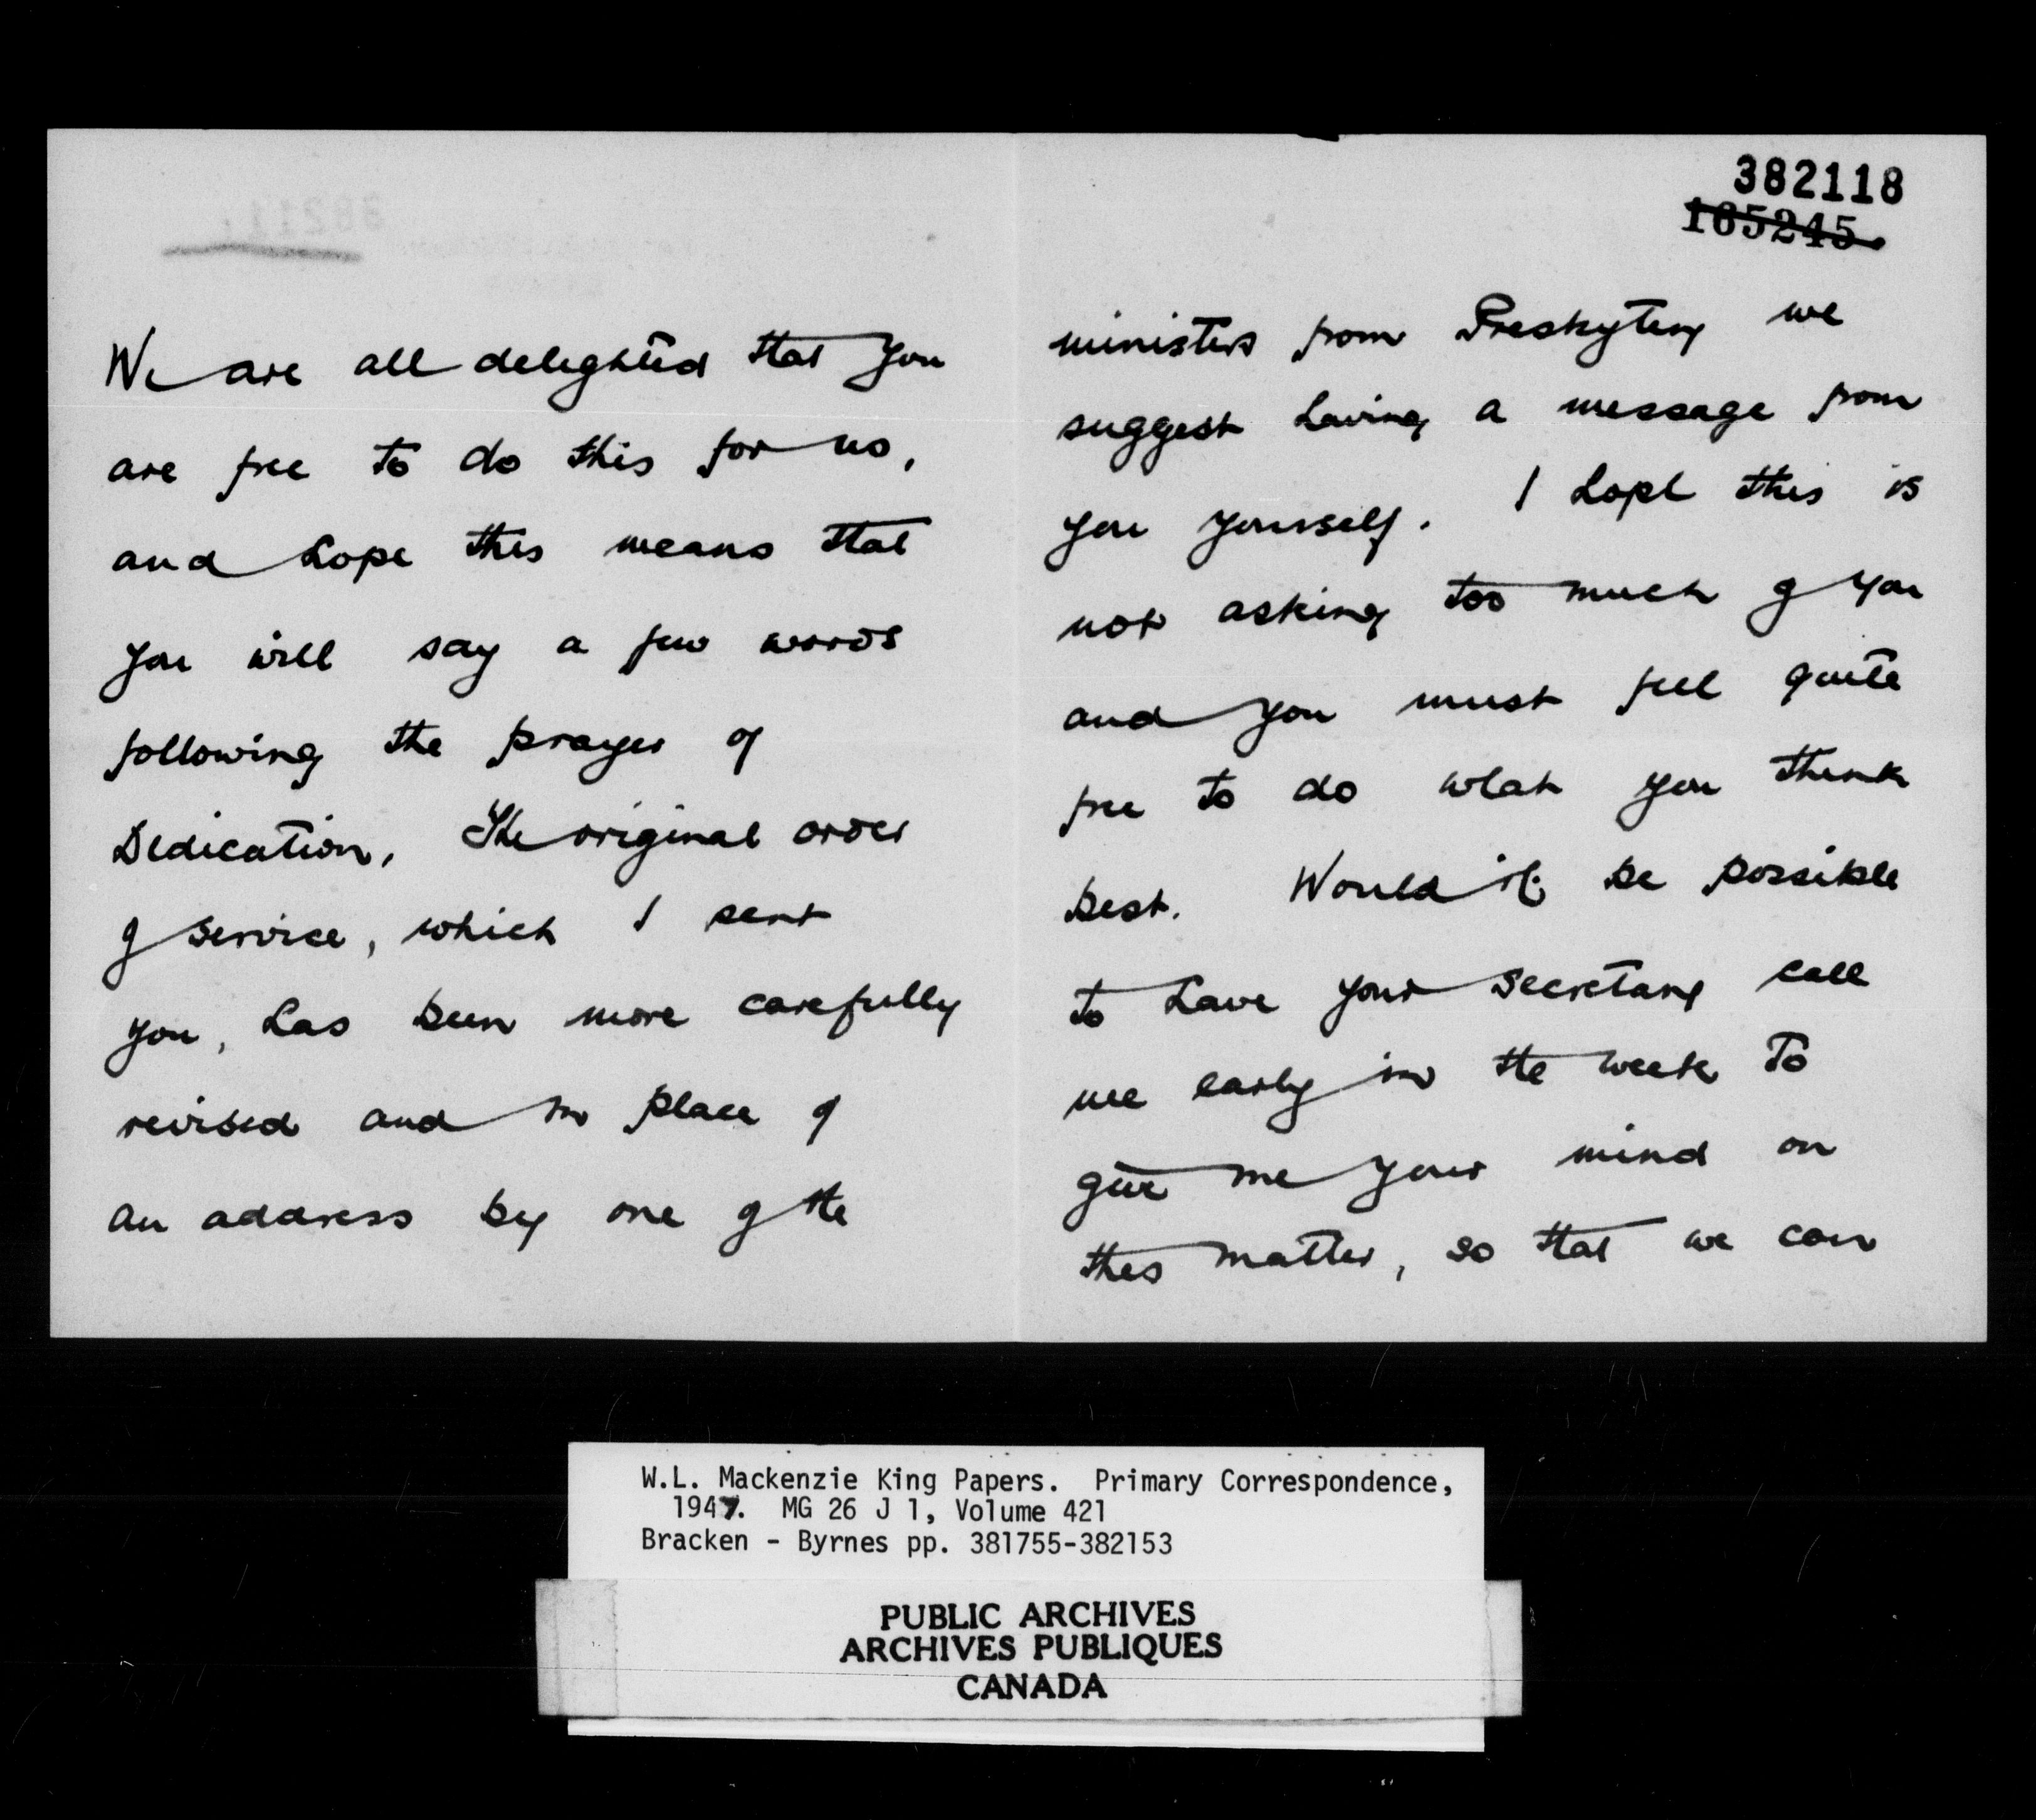 We are all delighted that you
are free to do this for us,
and hope this means that
you will say a few words
following the prayer of
Dedication. The original order
of service, which I sent
you, has been more carefully
revised and in place of
an address by one of the
382118
165245
ministers from Presbytery we
suggest having a message from
you yourself. I hope this is
not asking too much of you
and you must feel quite
free to do what you think
best. Would it be possible
to have your secretary call
me early in the week to
give me your mind on
this matter, so that we can
W.L. Mackenzie King Papers. Primary Correspondence,
1947. MG 26 J 1, Volume 421
Bracken - Byrnes pp. 381755-382153
PUBLIC ARCHIVES
ARCHIVES PUBLIQUES
CANADA